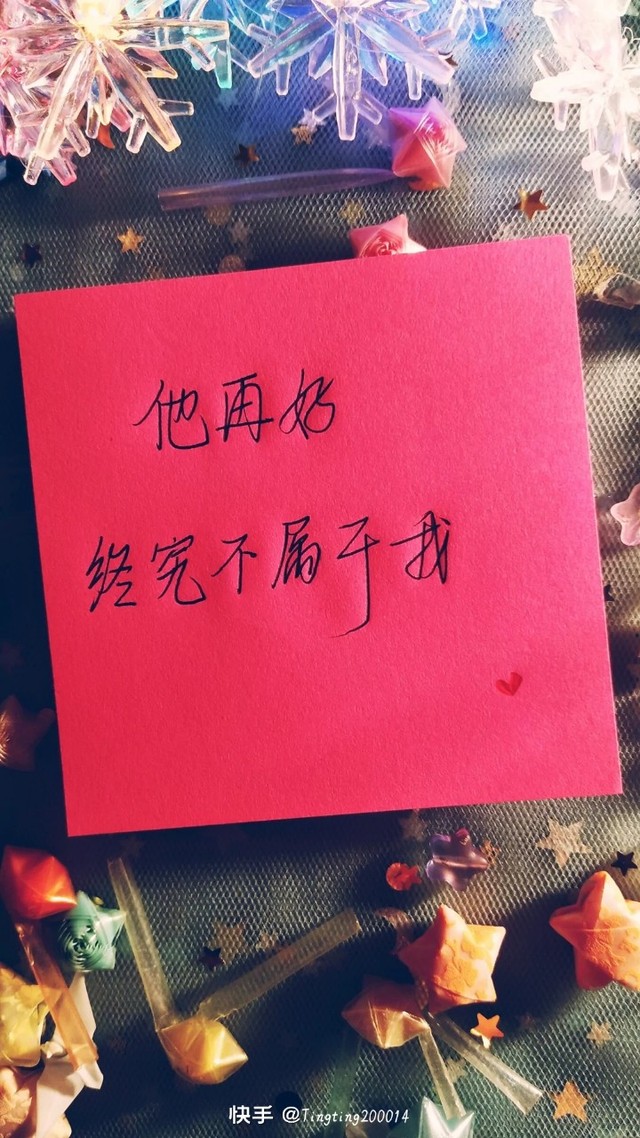 他再好
终究不属于我
快手 @Tingting200014